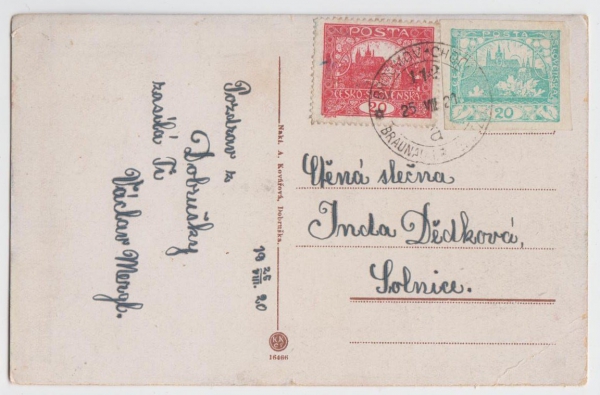 Pozdrav z
Dobrušky
zasílá Ti
Václav Mergl.
19 25/VIII. 20
Nakl. A. Kovářová, Dobruška.
16466
POSTA
ČESKO-SLOVENSKÁ
20
POSTA
20
25 VIII 20
BRAUNAU
Ctěná slečna
Inda Dědková,
Solnice.